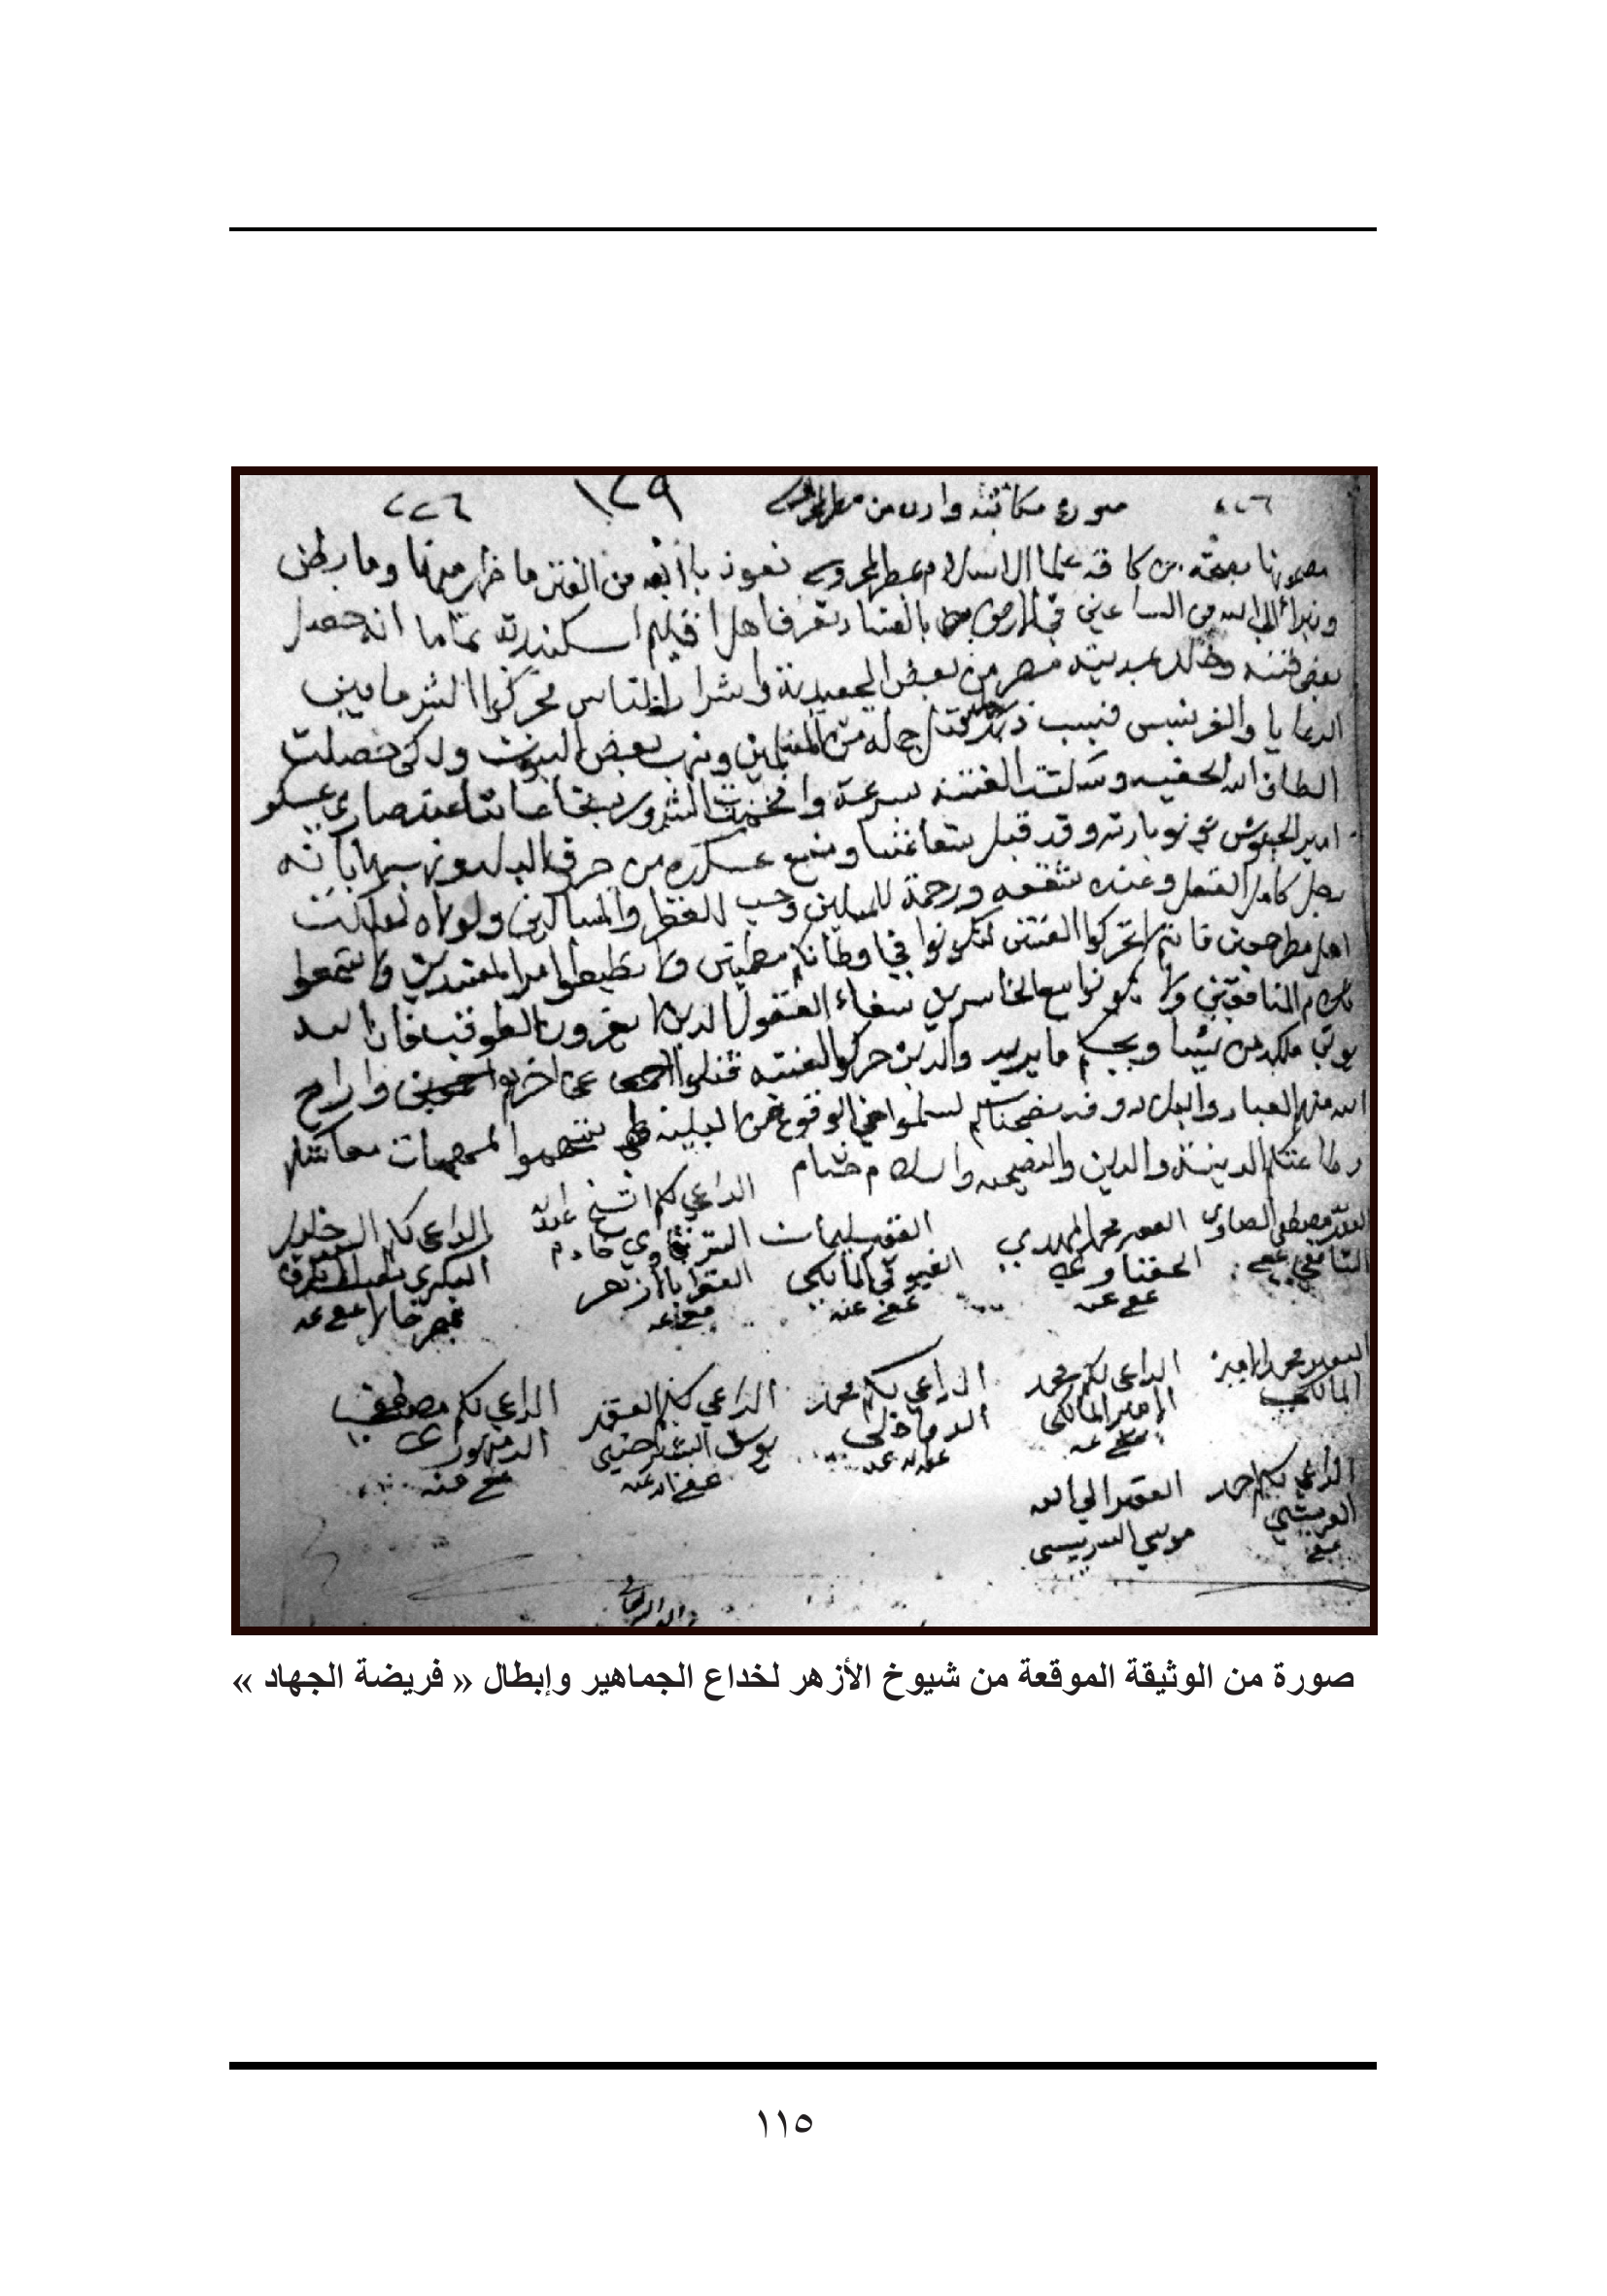 ٢٢٦
صورة مكاتبة واردة من مصر المحروسة
١٢٩
٢٢٦
مضمونها نصيحة من كافة علما الاسلام بمصر المحروسة نعوذ بالله من الفتن ما ظهر منها وما بطن
ونبرا الى الله من الساعين في الارض بالفساد نعرف اهل اقليم اسكندرية تماما انه حصل
بعض فتنه بمدينة مصر من بعض الجعيدية واشرار الناس فحركوا الشر ما بين
الرعايا والفرنسيس فبسبب ذلك قتل جملة من المسلمين ونهب بعض البيوت ولكن حصلت
الطاف الله الخفيه وسكنت الفتنه بسرعة وانخمدت الشرور بشفاعاتنا عند صاري عسكر
امير الجيوش بونوبارته وقد قبل شفاعتنا ومنع عسكره من حرق البلد ونهبها بانه
رجل كامل العقل وعنده شفقه ورحمة للمسلمين وحب للفقرا والمساكين ولولاه لهلكت
اهل مصر اجمعين فانتم لا تحركوا الفتن لتكونوا في اوطانكم مطمنين ولا تطيعوا امر المفسدين ولا تسمعوا
كلام المنافقين ولا تكونوا مع الخاسرين سفهاء العقول الذين لا يعرفون العواقب فان الله
يوتي ملكه من يشا ويحكم ما يريد والذين حركوا الفتنه قتلوا عن اخرهم واراح
الله منهم العباد والبلاد وقد نصحناكم لتسلموا من الوقوع في البلية تنتبهوا لمهمات معاشكم
وطاعتكم الدينية والدين والنصيحه والسلام ختام
الفقير مصطفى الصاوي الشافعي عفي
الفقير محمد المهدي الحفناوي عفي عنه
الفقير سليمان الفيومي المالكي عفي عنه
الداعي لكم الشيخ عبد الله الشرقاوي خادم الفقرا بالازهر عفي عنه
الداعي لكم السيد خليل البكري نقيب الاشراف بمصر حالا عفي عنه
الفقير محمد الامير المالكي
الداعي لكم محمد الامير المالكي عفي عنه
الداعي لكم محمد الدواخلي عفي عنه
الداعي لكم الفقير يوسف الشبراخيتي عفي الله عنه
الداعي لكم مصطفى الدمنهوري عفي عنه
الداعي لكم احمد العريشي عفي
الفقير الى الله موسى السرسي
صورة من الوثيقة الموقعة من شيوخ الأزهر لخداع الجماهير وإبطال « فريضة الجهاد »
١١٥